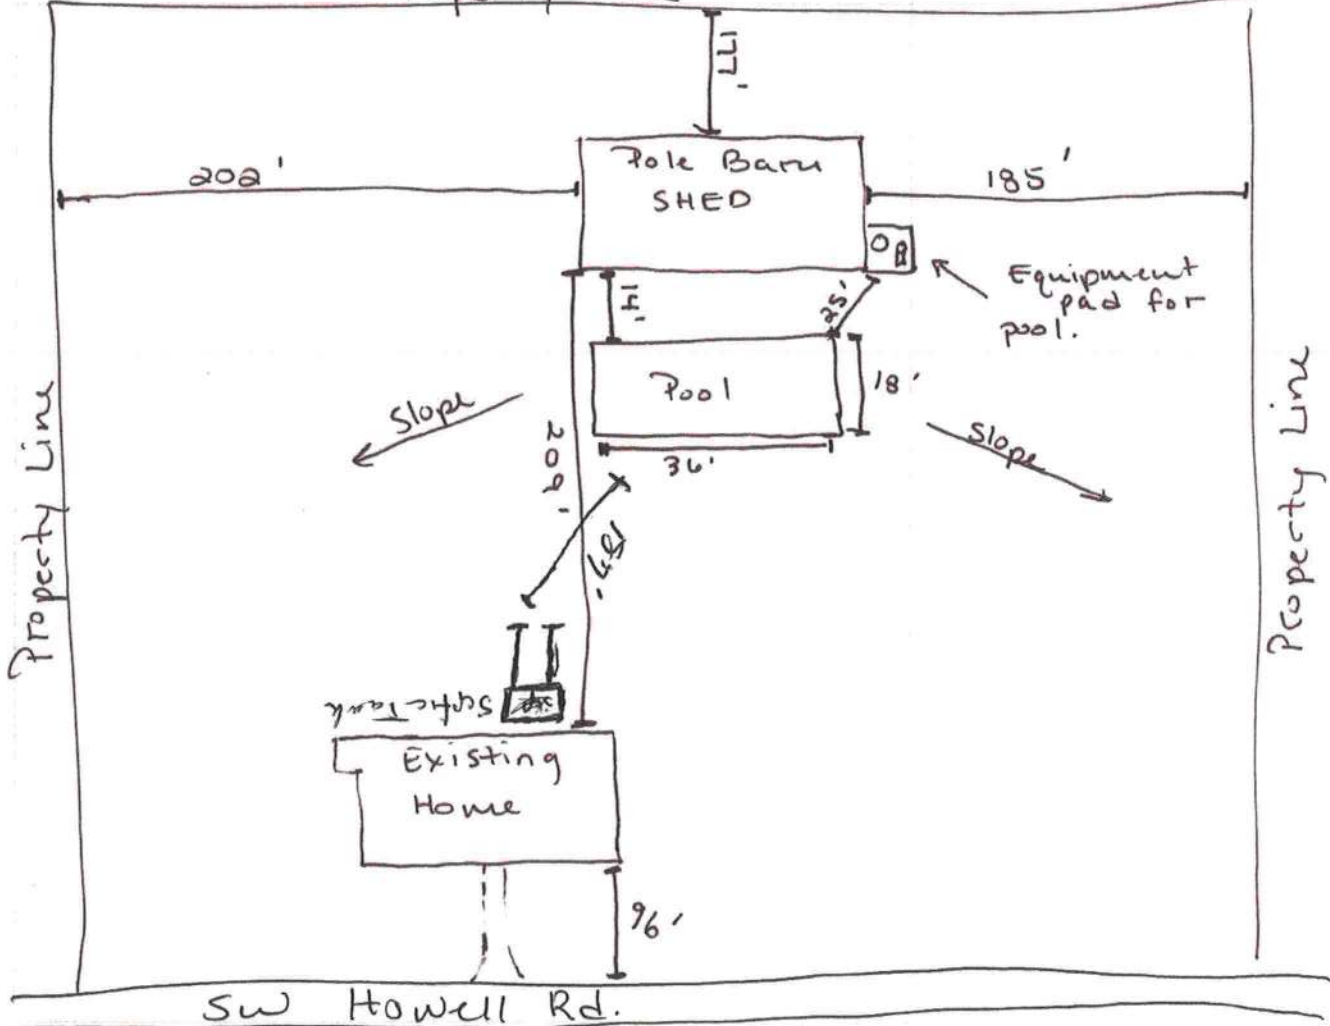 177'
Pole Barn
SHED
202'
185'
Equipment
pad for
pool.
14'
25'
Pool
18'
36'
Slope
Slope
209'
Property Line
Property Line
Septic Tank
Existing
Home
96'
SW Howell Rd.